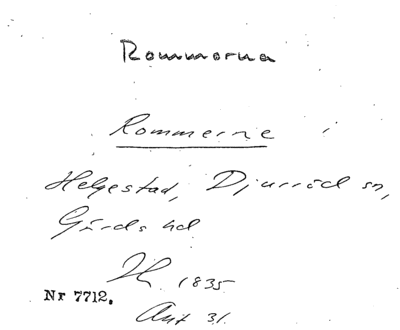 Rommorna
Rommerne i
Helgestad, Djurröd sn,
Gärds hd
1835
Nr 7712.
Ant 31.